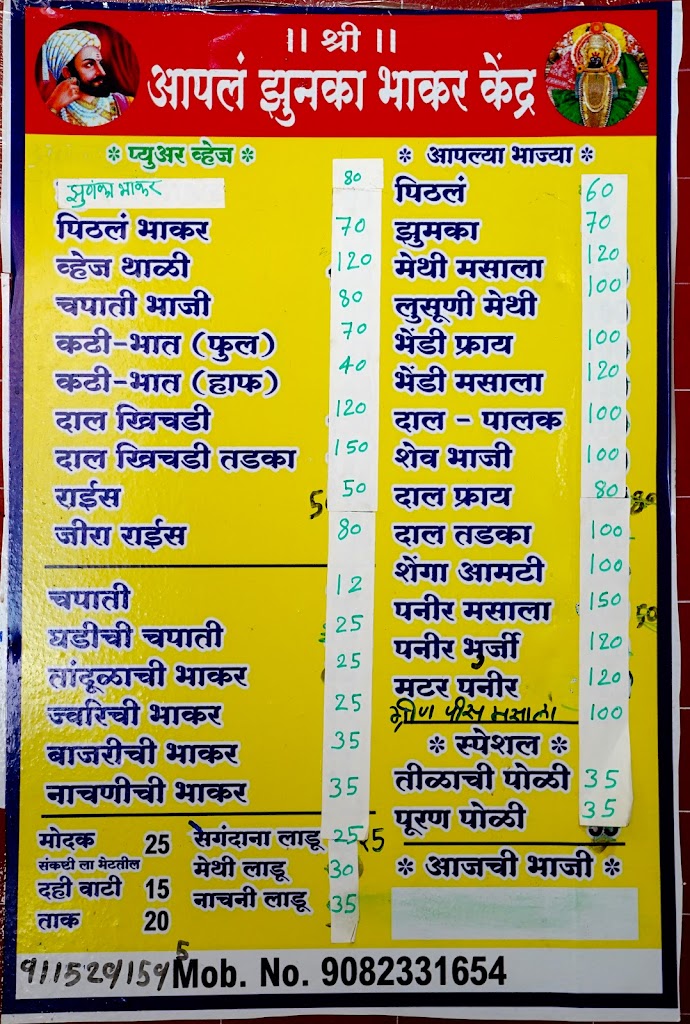 ।। श्री ।।
आपलं झुनका भाकर केंद्र
* प्युअर व्हेज *
झुणका भाकर 80
पिठलं भाकर 70
व्हेज थाळी 120
चपाती भाजी 80
कढी-भात (फुल) 70
कढी-भात (हाफ) 40
दाळ खिचडी 120
दाळ खिचडी तडका 150
राईस 50
जीरा राईस 80
चपाती 12
घडीची चपाती 25
तांदूळाची भाकर 25
ज्वरिची भाकर 25
बाजरीची भाकर 35
नाचणीची भाकर 35
मोदक 25
संकष्टी ला भेटतील
दही वाटी 15
ताक 20
सेगंदाना लाडू 25
मेथी लाडू 30
नाचनी लाडू 35
* आपल्या भाज्या *
पिठलं 60
झुमका 70
मेथी मसाला 120
लुसूणी मेथी 100
भेंडी फ्राय 100
भेंडी मसाला 120
दाळ - पालक 100
शेव भाजी 100
दाळ फ्राय 80
दाळ तडका 100
शेंगा आमटी 100
पनीर मसाला 150
पनीर भुर्जी 120
मटर पनीर 120
ग्रीण पीस मसाला 100
* स्पेशल *
तीळाची पोळी 35
पूरण पोळी 35
* आजची भाजी *
Mob. No. 9082331654